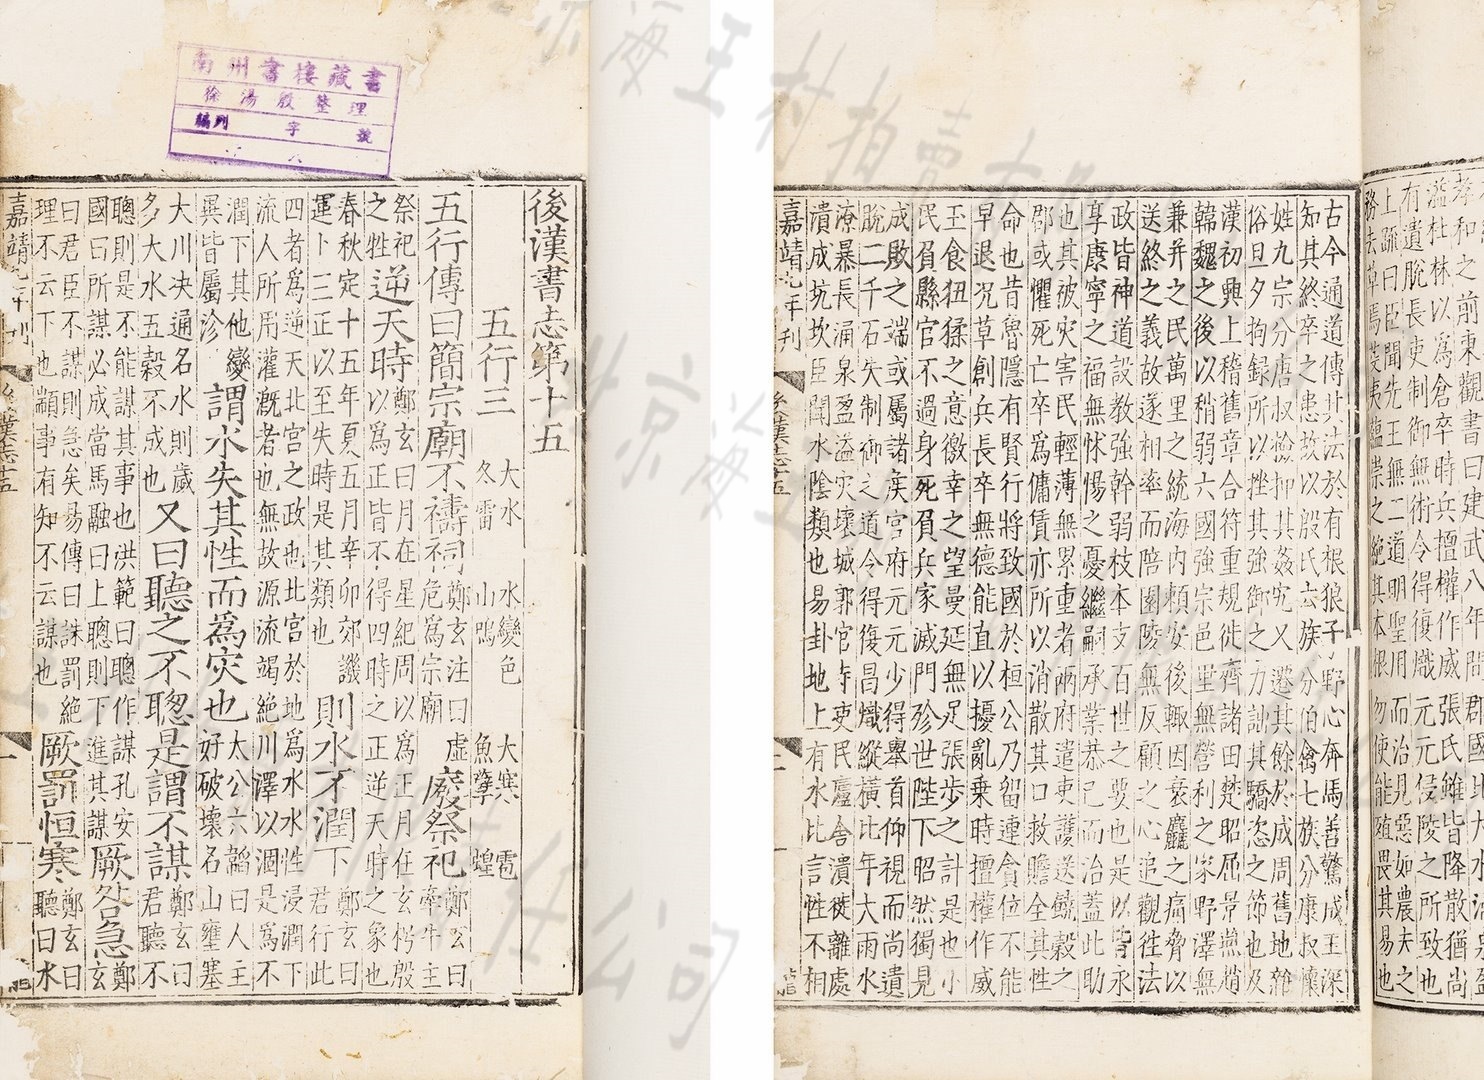 南州書樓藏書
徐湯殷整理
編列 字 號
後漢書志第十五
五行三
大水 水變色 大寒 雹
冬雷 山鳴 魚孽 蝗
五行傳曰簡宗廟不禱祠鄭玄注曰虛危爲宗廟廢祭祀鄭玄曰牽牛主
祭祀之牲逆天時鄭玄曰月在星紀周以爲正月在玄枵殷以爲正皆不得四時之正逆天時之象也
春秋定十五年夏五月辛卯郊譏運卜三正以至失時是其類也則水不潤下鄭玄曰君行此
四者爲逆天北宮之政也北宮於地爲水水性浸潤下
流人所用灌溉者也無故源流竭絕川澤以涸是爲不
潤下其他變異皆屬沴謂水失其性而爲災也太公六韜曰人主好破壞名山壅塞
大川决通名水則歲多大水五穀不成也又曰聽之不聰是謂不謀鄭玄曰君聽不
聰則是不能謀其事也洪範曰聰作謀孔安國曰所謀必成當馬融曰上聰則下進其謀厥咎急鄭玄
曰君臣不謀則急矣易傳曰誅罰絕理不云下也顓事有知不云謀也厥罰恒寒鄭玄曰聽曰水
嘉靖九年刊 後漢志十五 一
孝和之前東觀書曰建武八年間郡國比大水涌泉盈
溢杜林以爲倉卒時兵擅權作威張氏雖皆降散猶尚
有遺脫長吏制御無術令得復熾元元侵陵之所致也
上疏曰臣聞先王無二道明聖用而治見惡如農夫之
務去草焉芟夷蘊崇之絕其本根勿使能殖畏其易也
古今通道傳其法於有根狼子野心奔馬善驚成王深
知其終卒之患故以殷氏六族分伯禽七族分康叔懷
姓九宗分唐叔撿抑其姦宄又遷其餘於成周舊地雜
俗旦夕拘録所以挫其強御之力詘其驕恣之節也及
漢初興上稽舊章合符重規徙齊諸田楚昭屈景燕趙
韓魏之後以稍弱六國強宗邑里無營利之家野澤無
兼并之民萬里之統海内頼安後輒因衰麤之痛脅以
送終之義故遂相率而陪園陵無反顧之心追觀徃法
政皆神道設教強幹弱枝本支百世之要也是以皆永
享康寧之福無怵惕之憂繼嗣承業恭己而治蓋此助
也其被灾害民輕薄無累重者兩府遣吏護送饒穀之
郡或懼死亡卒爲傭賃亦所以消散其口救贍全其性
命也昔魯隱有賢行將致國於桓公乃留連貪位不能
早退况草創兵長卒無德能直以擾亂乗時擅權作威
玉食狃猱之意徼幸之望曼延無足張步之計是也小
民負縣官不過身死負兵家滅門殄世陛下昭然獨見
成敗之端或屬諸侯宮府元元少得舉首仰視而尚遺
脫二千石失制御之道令得復昌熾縱橫比年大雨水
潦暴長涌泉盈溢灾壞城郭官寺吏民廬舍潰徙離處
潰成坑坎臣聞水陰類也易卦地上有水比言性不相
嘉靖九年刊 後漢志十五
北京海王村拍賣有限責任公司